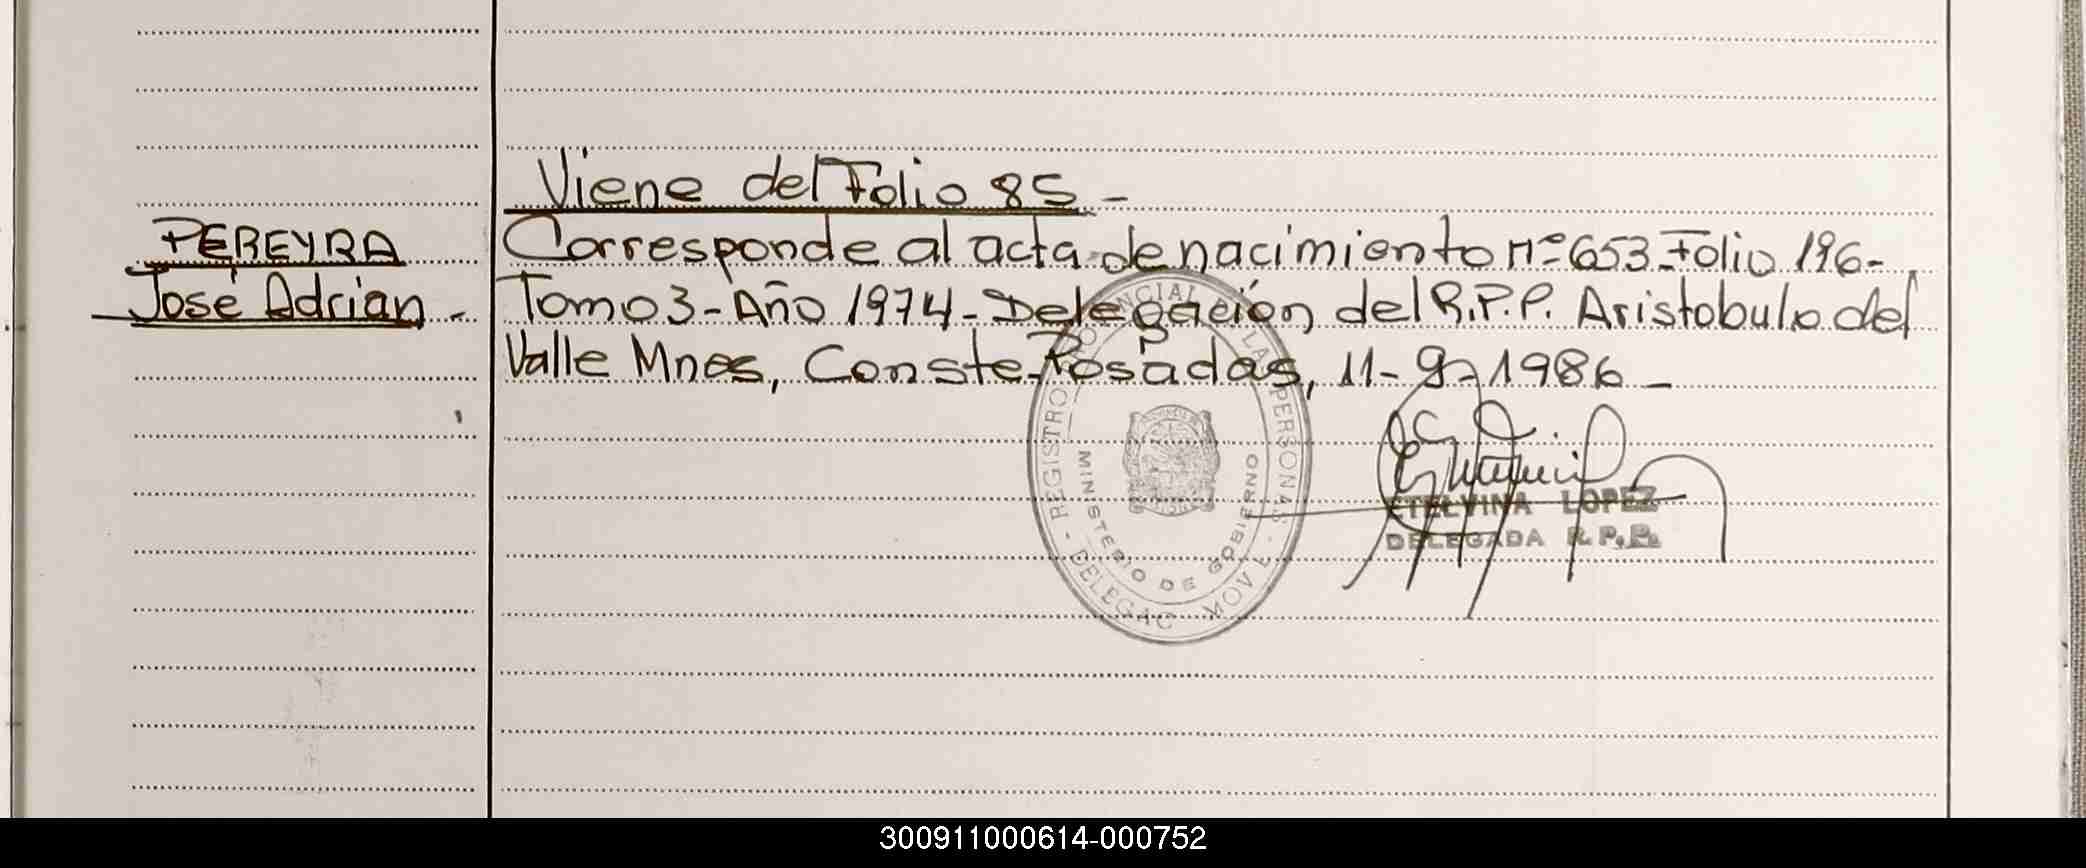 Viene del Folio 85 -
PEREYRA
José Adrian -
Corresponde al acta de nacimiento nº 653 - Folio 196 -
Tomo 3 - Año 1974 - Delegación del R.P.P. Aristobulo del
Valle Mnes, Conste - Posadas, 11 - 9 - 1986 -
REGISTRO PROVINCIAL DE LAS PERSONAS
MINISTERIO DE GOBIERNO
DELEGAC MOVIL
ETELVINA LOPEZ
DELEGADA R.P.P.
300911000614-000752